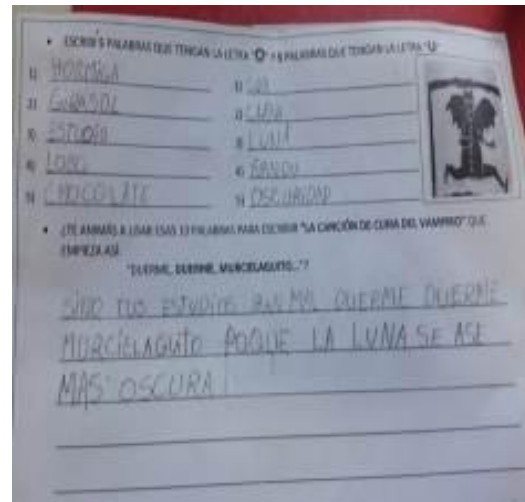 • ESCRIBÍ 5 PALABRAS QUE TENGAN LA LETRA "O" Y 5 PALABRAS QUE TENGAN LA LETRA "U"
1) HORMIGA
2) GIRASOL
3) ESTUDIO
4)
5) CHOCOLATE
1)
2) CUNA
3) LUNA
4)
5) OSCURIDAD
• ¿TE ANIMÁS A USAR ESAS 10 PALABRAS PARA ESCRIBIR "LA CANCIÓN DE CUNA DEL VAMPIRO" QUE
EMPIEZA ASÍ:
"DUERME, DUERME, MURCIELAGUITO..."?
TUS ESTUDIOS MAL DUERME DUERME
MURCIELAGUITO POQUE LA LUNA SE ASE
MAS OSCURA